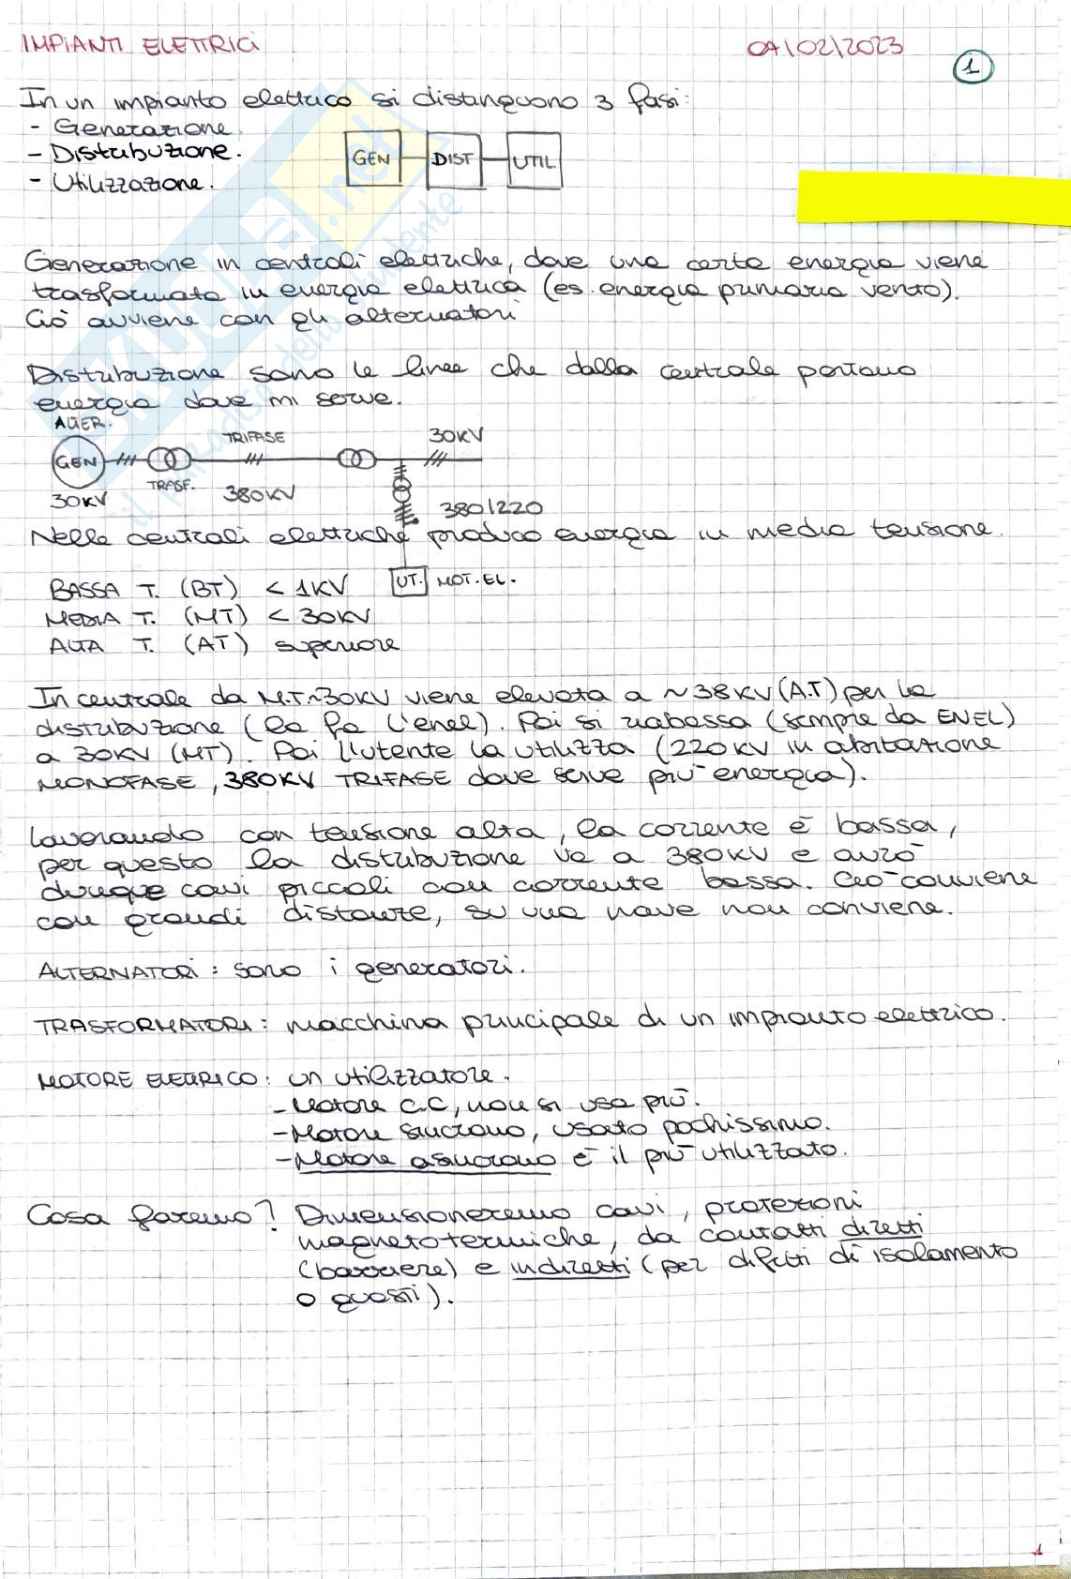 IMPIANTI ELETTRICI
01/02/2023
1
In un impianto elettrico si distinguono 3 fasi:
- Generazione.
- Distribuzione.
- Utilizzazione.
GEN DIST UTIL
Generazione in centrali elettriche, dove una certa energia viene
trasformata in energia elettrica (es. energia primaria vento).
Ciò avviene con gli alternatori
Distribuzione sono le linee che dalla centrale portano
energia dove mi serve.
ALTER.
TRIFASE 30KV
GEN
30KV TRASF. 380KV 380/220
Nelle centrali elettriche produco energia in media tensione.
BASSA T. (BT) < 1KV UT. MOT. EL.
MEDIA T. (MT) < 30KV
ALTA T. (AT) superiore
In centrale da M.T.~30KV viene elevata a ~38KV (A.T) per la
distribuzione (lo fa l'enel). Poi si riabassa (sempre da ENEL)
a 30KV (MT). Poi l'utente la utilizza (220KV in abitazione
MONOFASE, 380KV TRIFASE dove serve più energia).
Lavorando con tensione alta, la corrente è bassa,
per questo la distribuzione va a 380KV e avrò
dunque cavi piccoli con corrente bassa. Ciò conviene
con grandi distanze, su una nave non conviene.
ALTERNATORI: sono i generatori.
TRASFORMATORI: macchina principale di un impianto elettrico.
MOTORE ELETTRICO: un utilizzatore.
- Motore C.C, non si usa più.
- Motore sincrono, usato pochissimo.
- Motore asincrono è il più utilizzato.
Cosa faremo? Dimensioneremo cavi, protezioni
magnetotermiche, da contatti diretti
(barriere) e indiretti (per difetti di isolamento
o guasti).
1